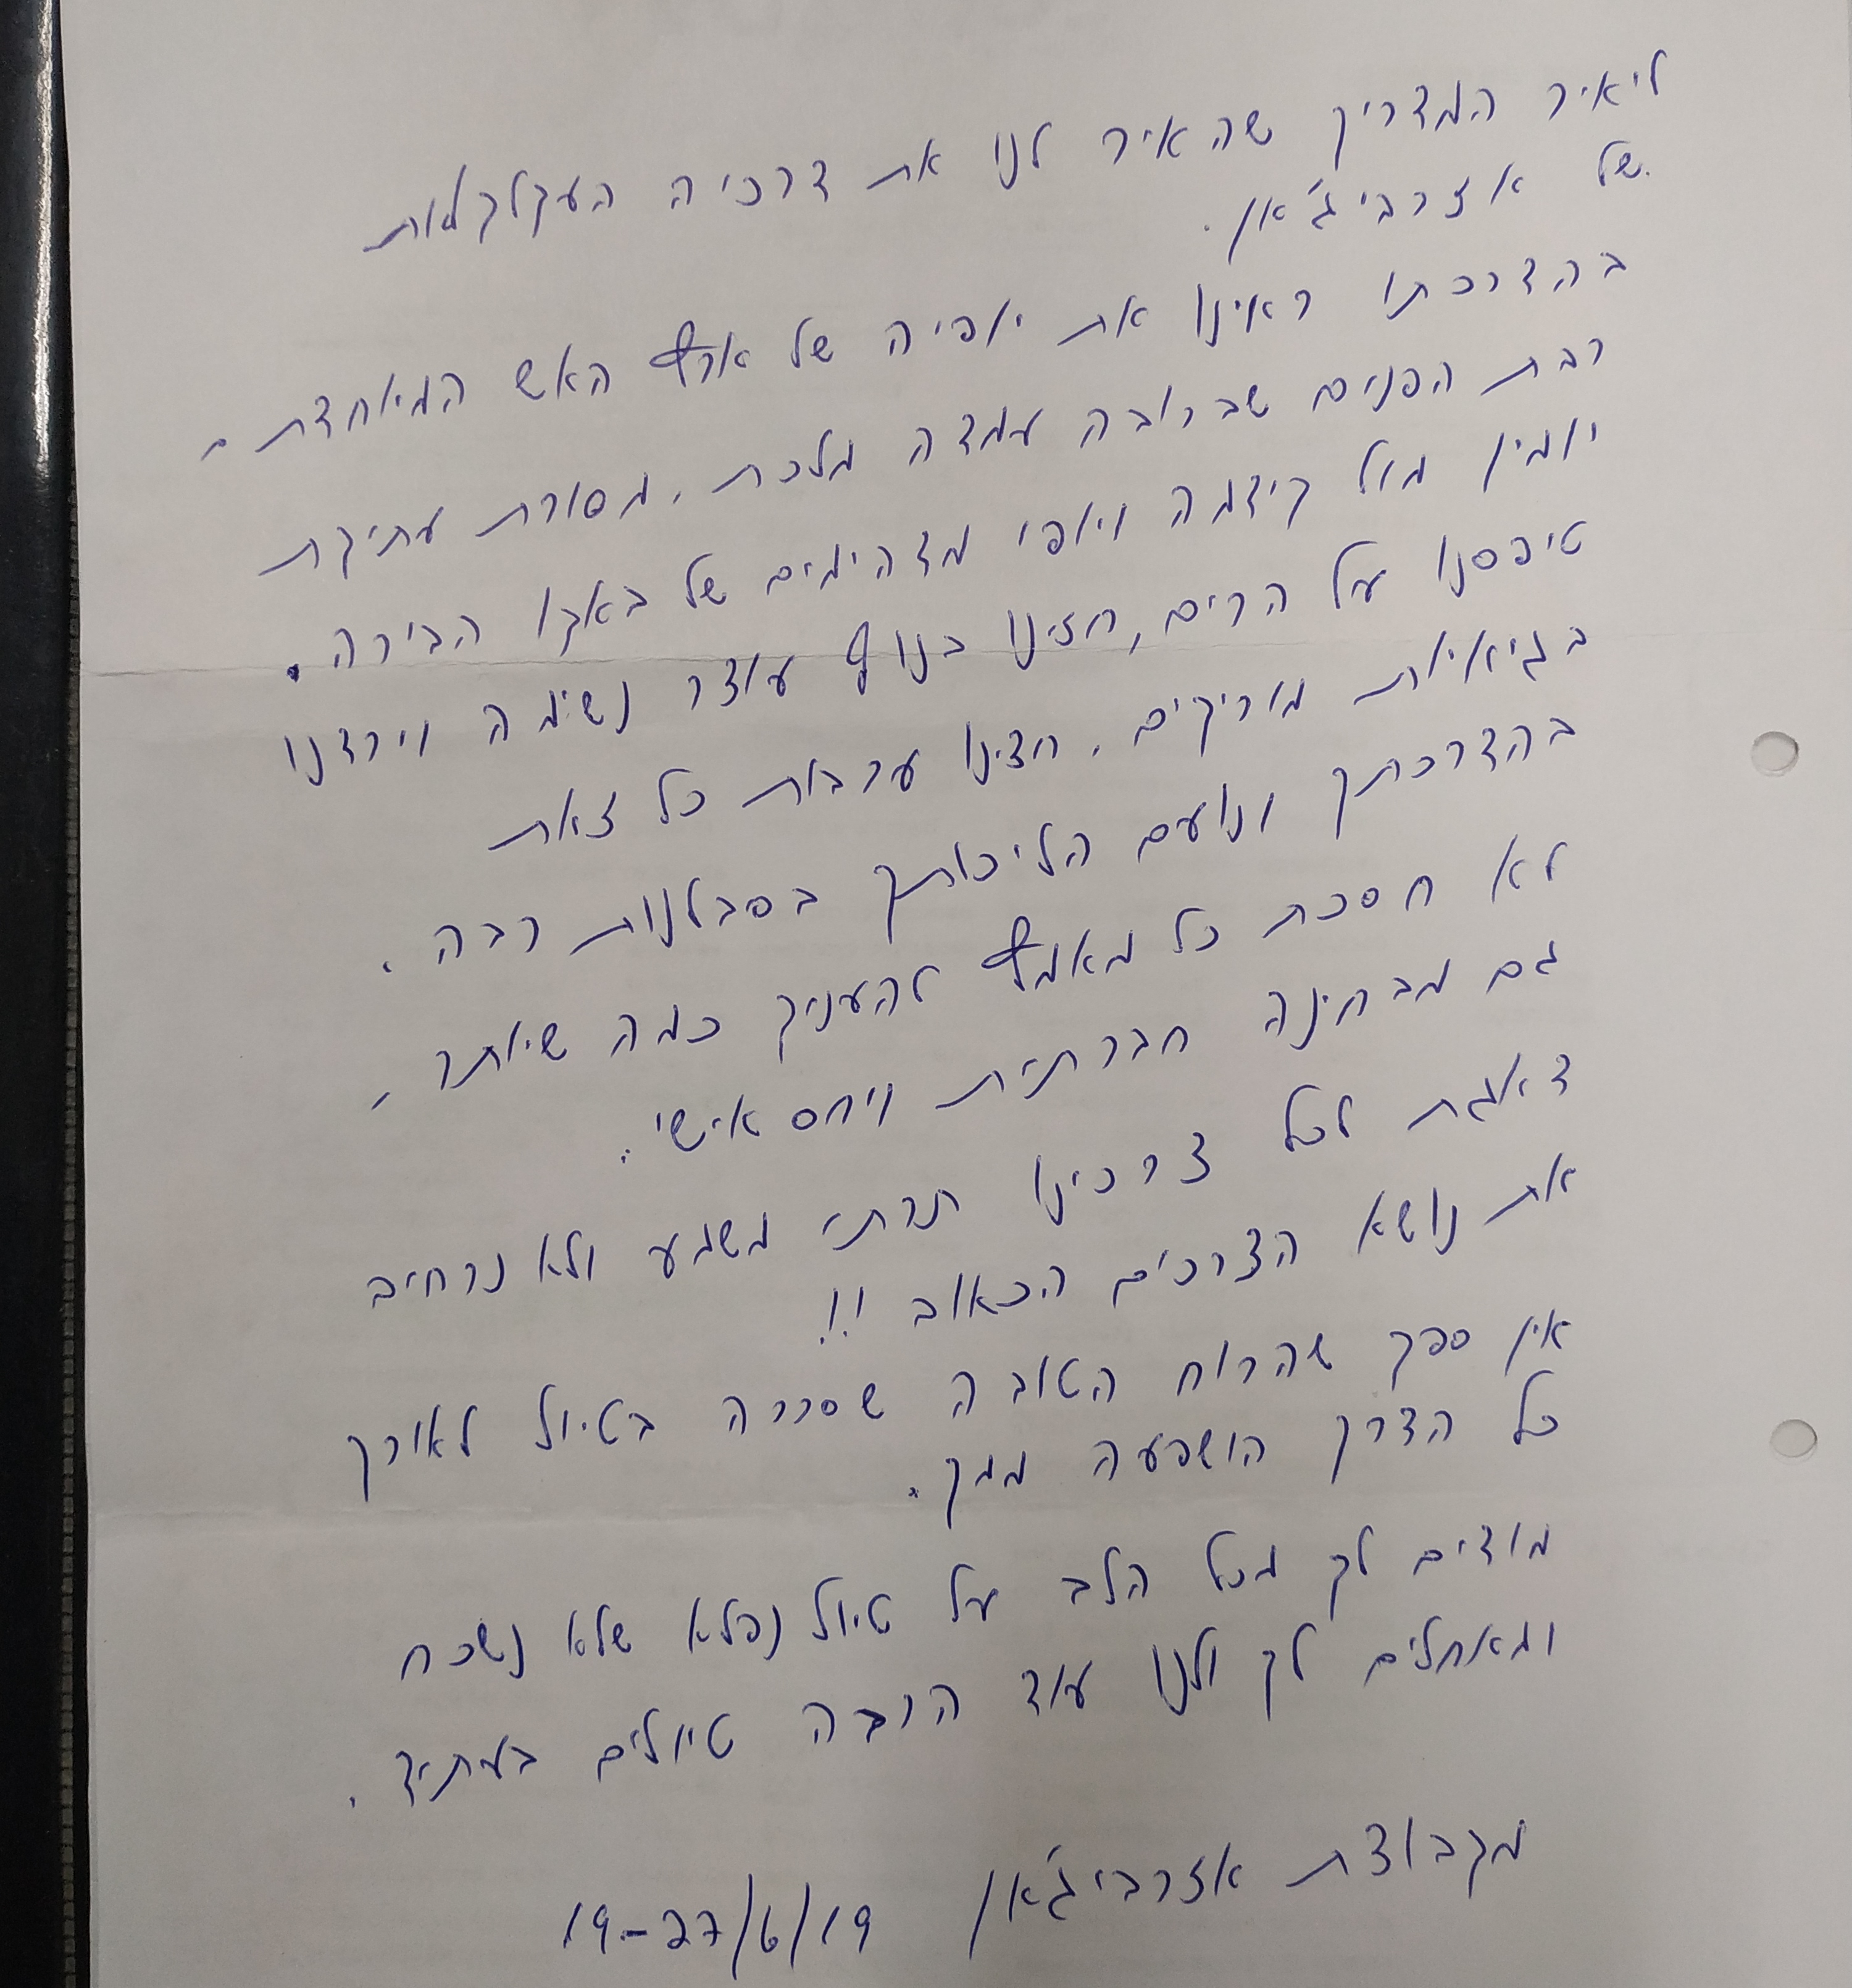 ליאיר המדריך שהאיר לנו את דרכיה העקלקלות
של אזרבייג'אן.
בהדרכתו ראינו את יופיה של ארץ האש המיוחדת -
רבת הפנים שברובה עומדה מלכת, מסורת עתיקת
יומין מול קידמה ויופי מדהימים של באקו הבירה.
טיפסנו על הרים, חזינו בנוף עוצר נשימה וירדנו
בגיאיות מוריקים. חצינו ערבות כל זאת
בהדרכתך ונועם הליכותיך בסבלנות רבה.
לא חסכת כל מאמץ להעניק כמה שיותר,
גם מבחינה חברתית ויחס אישי.
דאגת לכל צרכינו תרתי משמע ולא נרחיב
את נושא הצרכים הכאוב !!
אין ספק שהרוח הטובה ששררה בטיול לאורך
כל הדרך הושפעה ממך.
מודים לך מכל הלב על טיול נפלא שלא נשכח
ומאחלים לך ולנו עוד הרבה טיולים בעתיד.
מקבוצת אזרבייג'אן 19-27/6/19